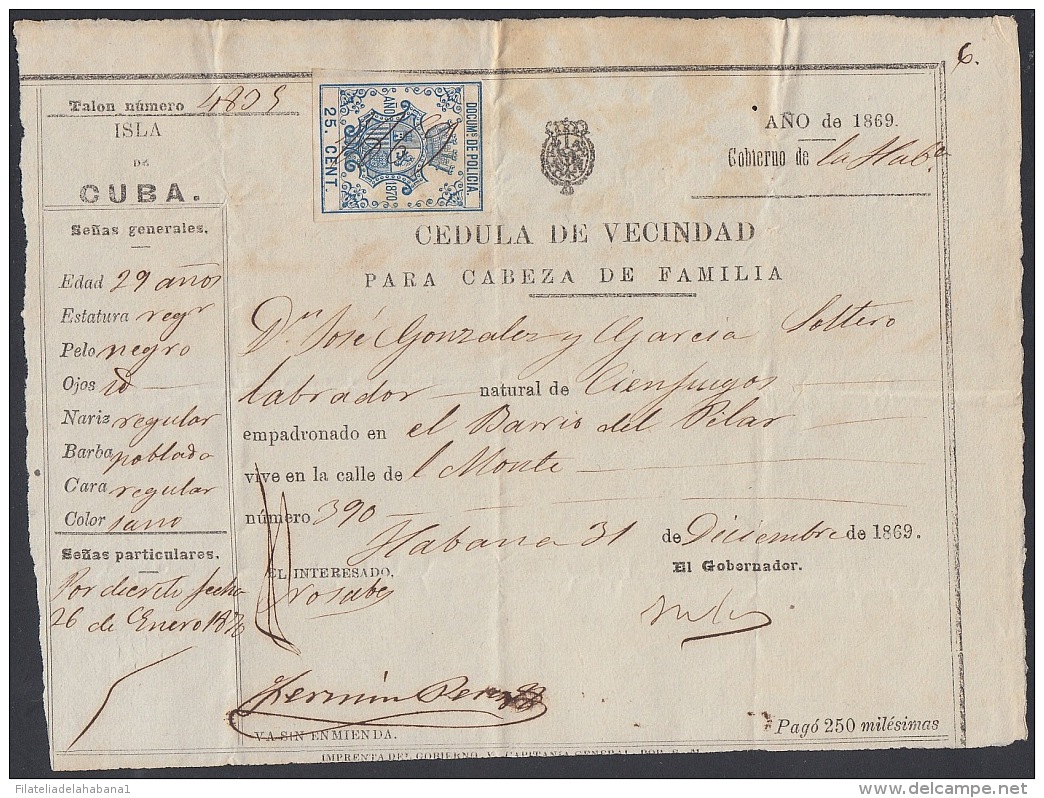 6.
Talon número 4805
ISLA
DE
CUBA.
Señas generales.
Edad 29 años
Estatura regr
Pelo negro
Ojos id
Nariz regular
Barba poblada
Cara regular
Color sano
Señas particulares.
Por decreto fecha
26 de Enero 1870
DOCUM.s DE POLICIA.
AÑO 1870
25. CENT.
AÑO de 1869.
Gobierno de la Hab.a
CEDULA DE VECINDAD
PARA CABEZA DE FAMILIA
Dn José Gonzalez y Garcia Soltero
labrador natural de Cienfuegos
empadronado en el Barrio del Pilar
vive en la calle del Monte
número 390
Habana 31 de Diciembre de 1869.
EL INTERESADO,
El Gobernador.
no sabe
Fermin Perez
VA SIN ENMIENDA.
Pagó 250 milésimas
IMPRENTA DEL GOBIERNO Y CAPITANIA GENERAL POR S. M.
Filateliadelahabana1
delcampe.net